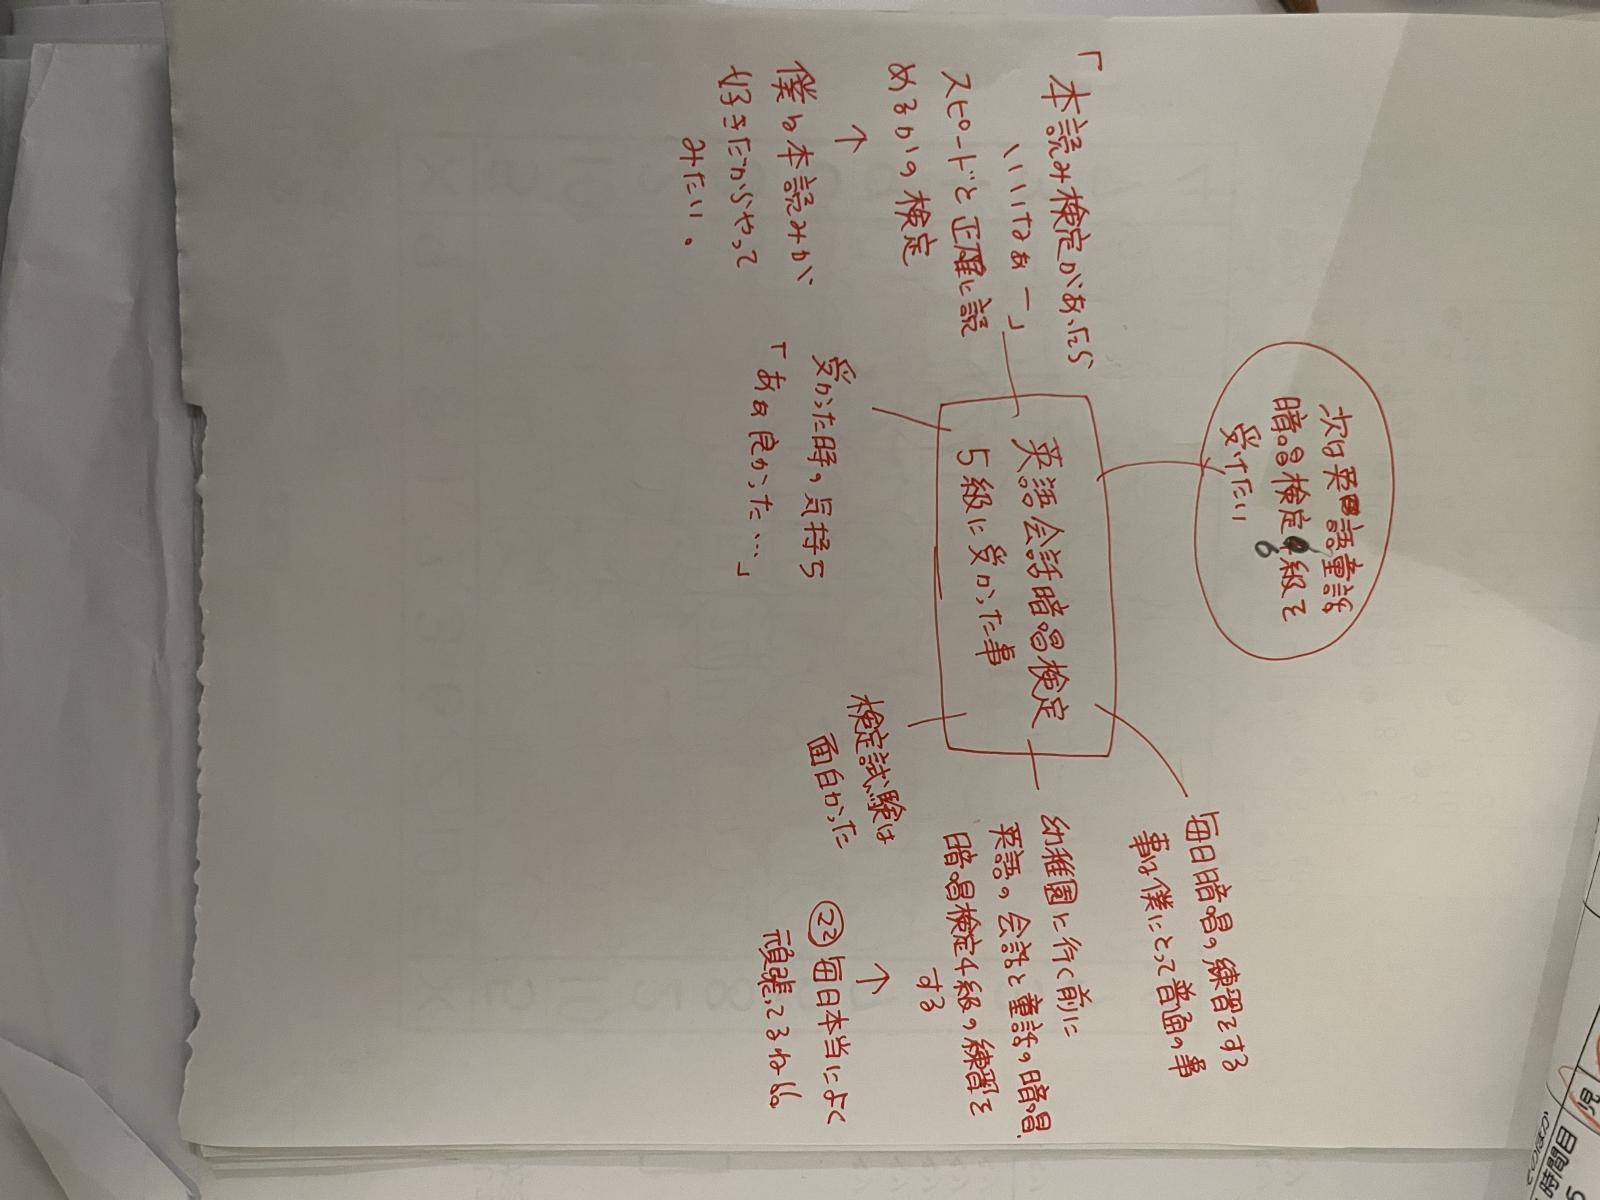 次は英語童話
暗唱検定6級を
受けたい
「本読み検定があったら
いいなぁー」
スピードと正確に読
めるかの検定
↑
僕は本読みが
好きだからやって
みたい。
英語会話暗唱検定
5級に受かった事
受かった時の気持ち
「あぁ良かった…」
検定試験は
面白かった
毎日暗唱の練習をする
事は僕にとって普通の事
幼稚園に行く前に
英語の会話と童話の暗唱
暗唱検定4級の練習を
する
↑
㉒毎日本当によく
頑張ってるね
時間目
児